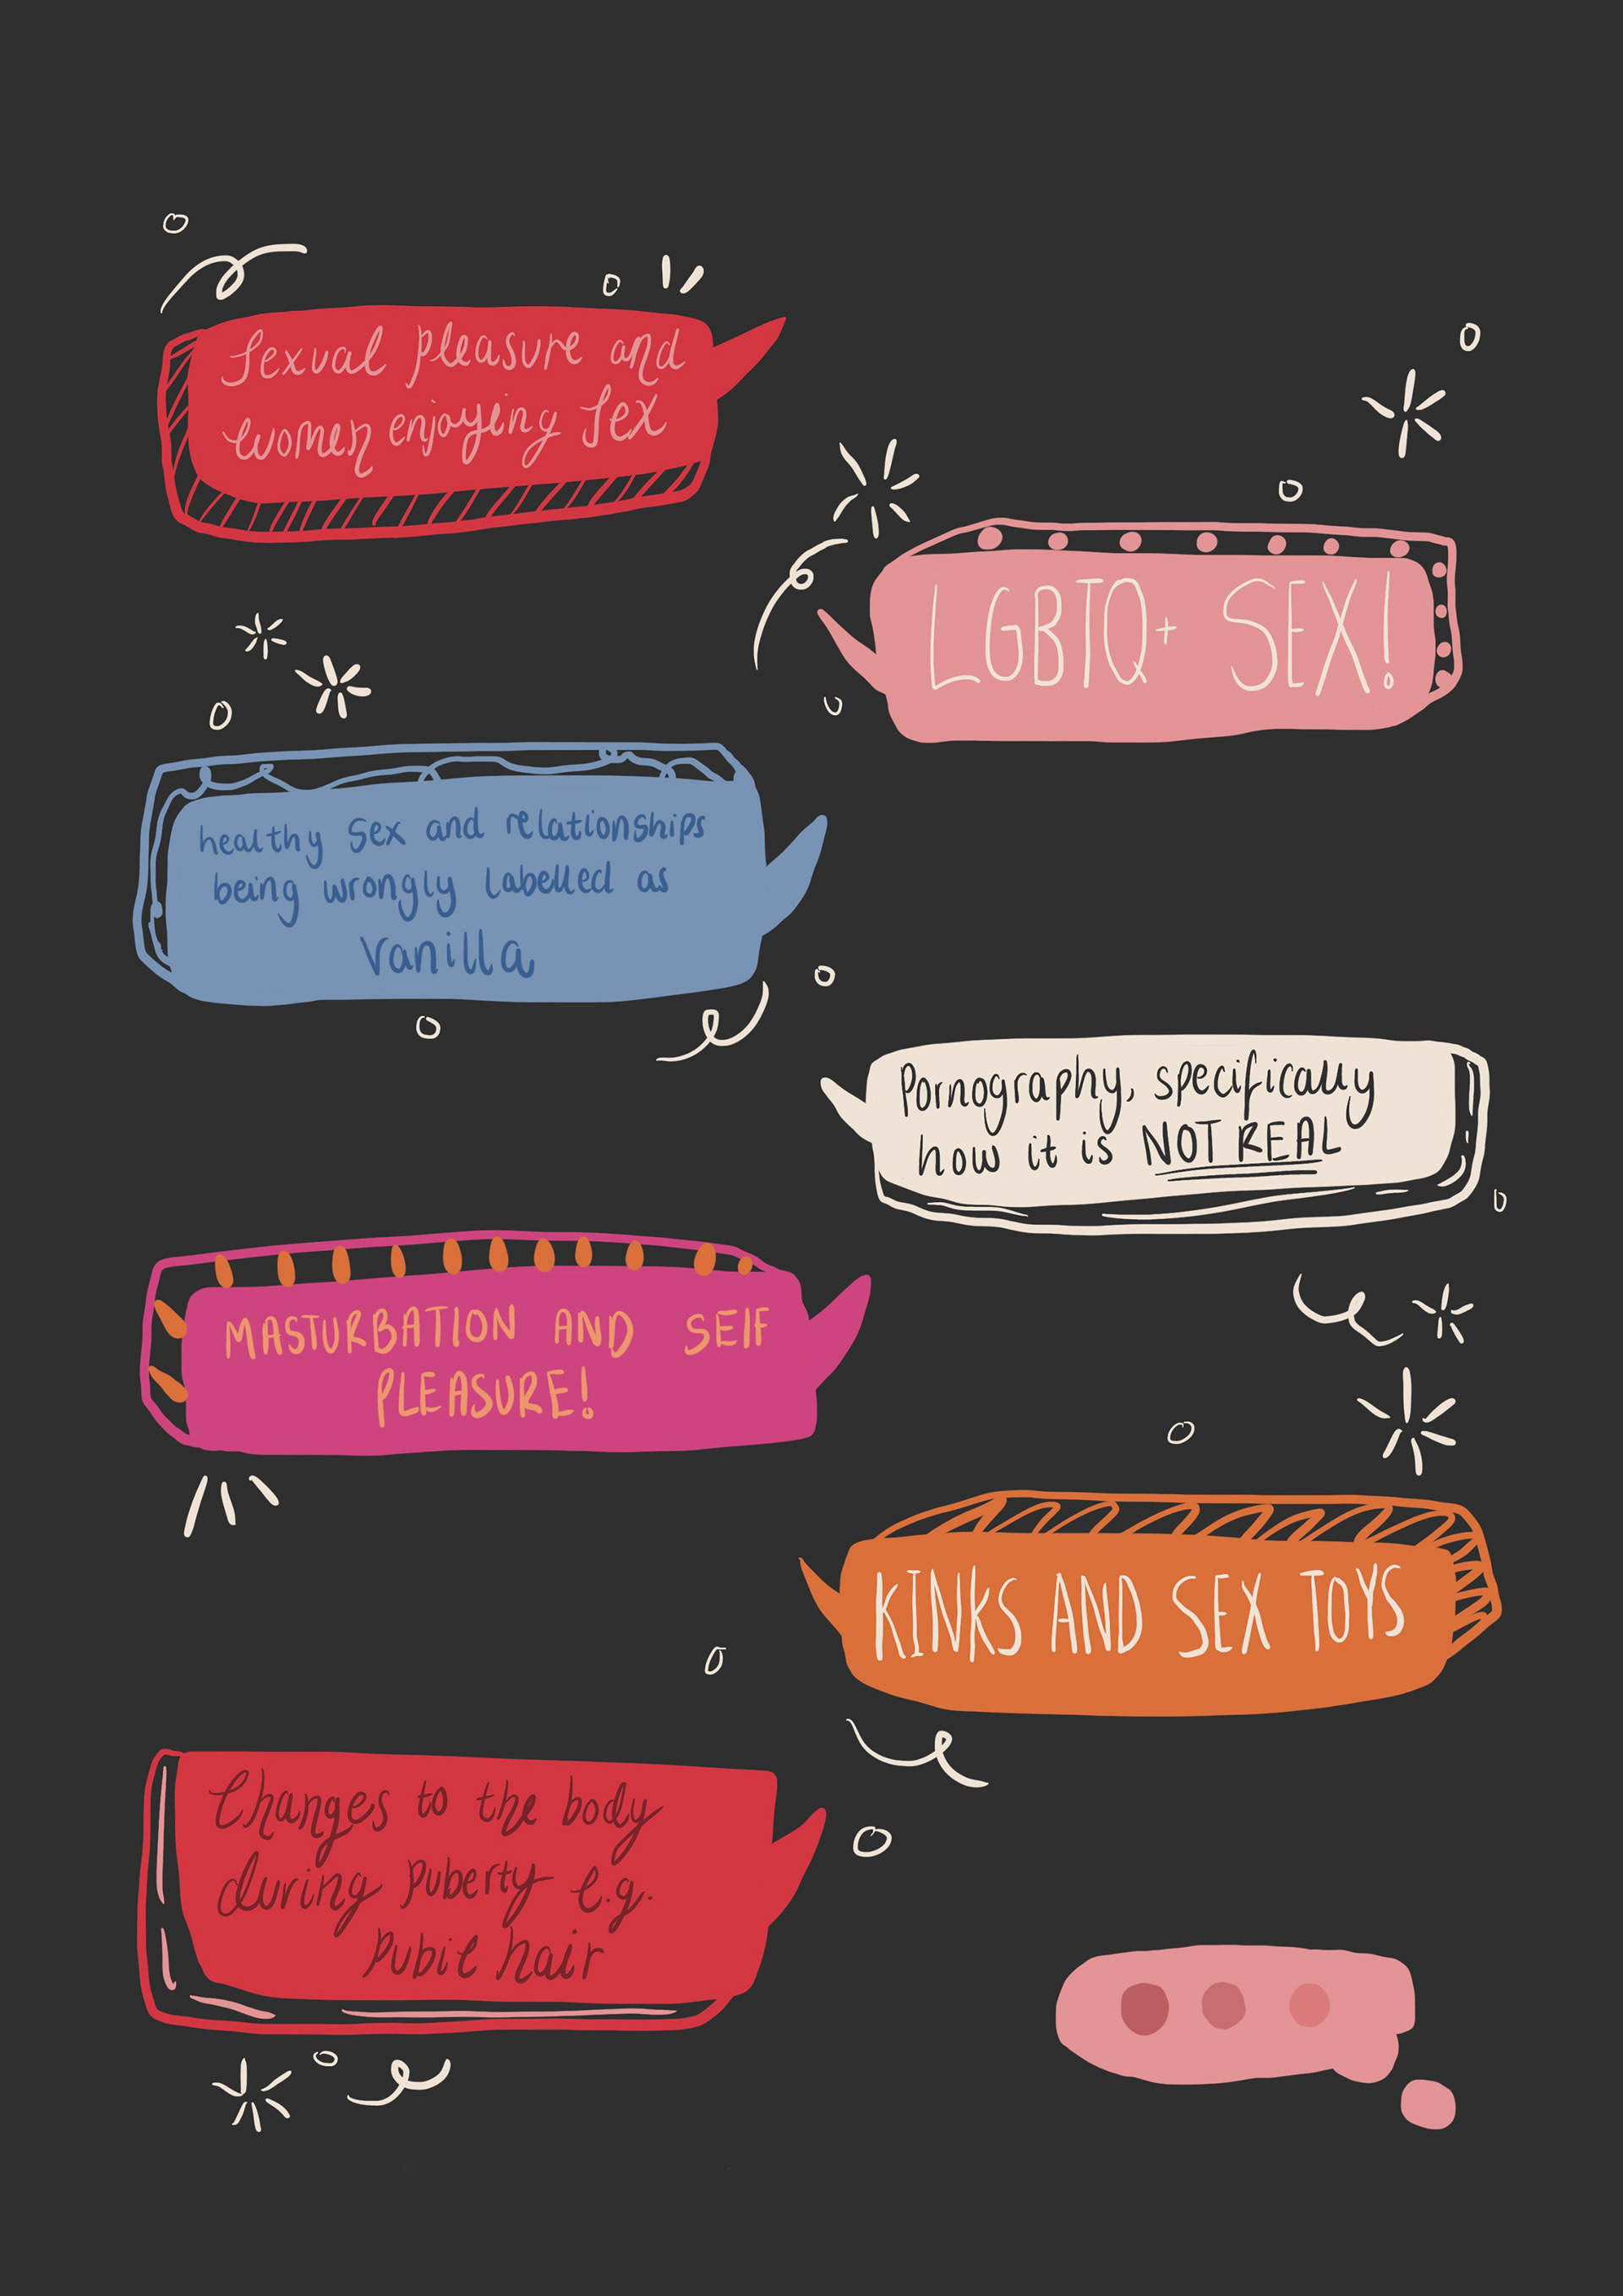 Sexual pleasure and
women enjoying sex
LGBTQ+ SEX!
healthy sex and relationships
being wrongly labelled as
vanilla
Pornography, specifically
how it is NOT REAL
MASTURBATION AND SELF
PLEASURE!
KINKS AND SEX TOYS
Changes to the body
during puberty e.g.
pubic hair